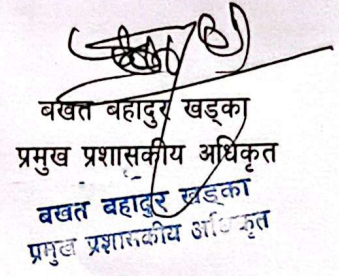 बखत बहादुर खड्का
प्रमुख प्रशासकीय अधिकृत
बखत बहादुर खड्का
प्रमुख प्रशासकीय अधिकृत